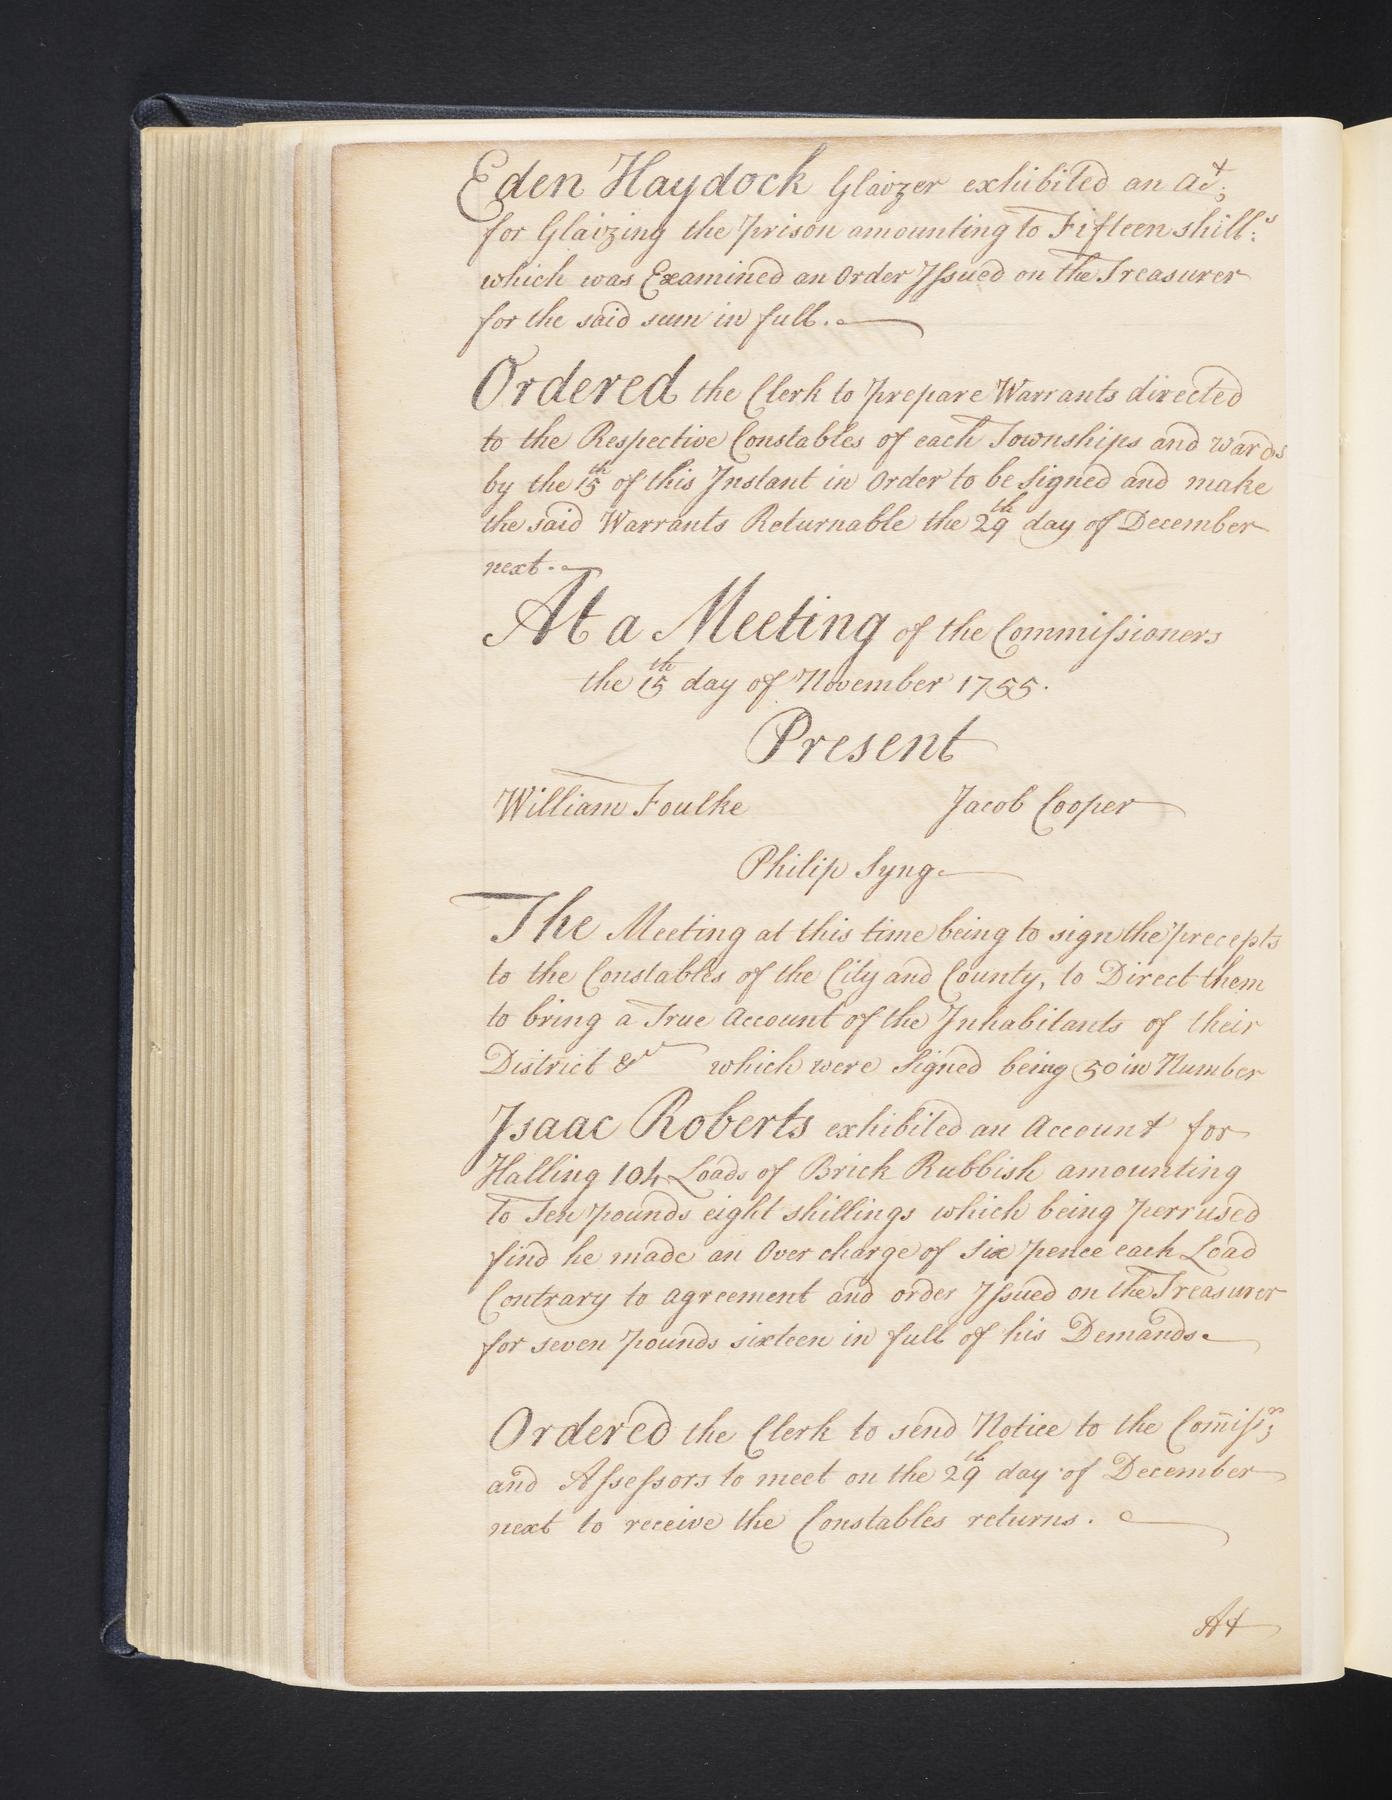 Eden Haydock Glaizer exhibited an Acct:
for Glaizing the prison amounting to Fifteen shill:s
which was Examined an Order Issued on the Treasurer
for the said sum in full.
Ordered the Clerk to prepare Warrants directed
to the Respective Constables of each Townships and wards
by the 15th of this Instant in Order to be Signed and make
the said Warrants Returnable the 29th day of December
next.
At a Meeting of the Commissioners
the 15th day of November 1755.
Present
William Foulke Jacob Cooper
Philip Syng
The Meeting at this time being to sign the precepts
to the Constables of the City and County, to Direct them
to bring a True Account of the Inhabitants of their
District &c which were Signed being 50 in Number
Isaac Roberts exhibited an Account for
Halling 104 Loads of Brick Rubbish amounting
to Ten pounds eight shillings which being perrused
find he made an Over charge of Six pence each Load
Contrary to agreement and order Issued on the Treasurer
for seven pounds sixteen in full of his Demands
Ordered the Clerk to send Notice to the Comissrs;
and Assessors to meet on the 29th day of December
next to receive the Constables returns.
At